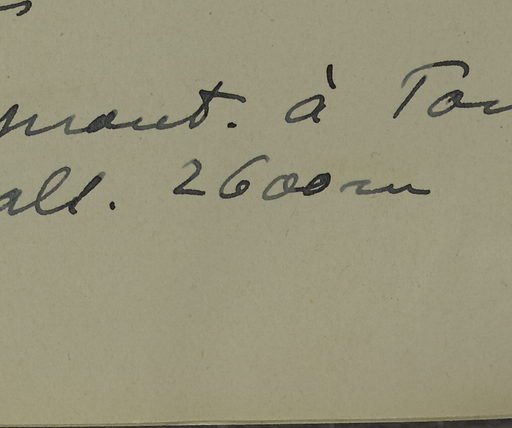 mont. à Ton
alt. 2600m